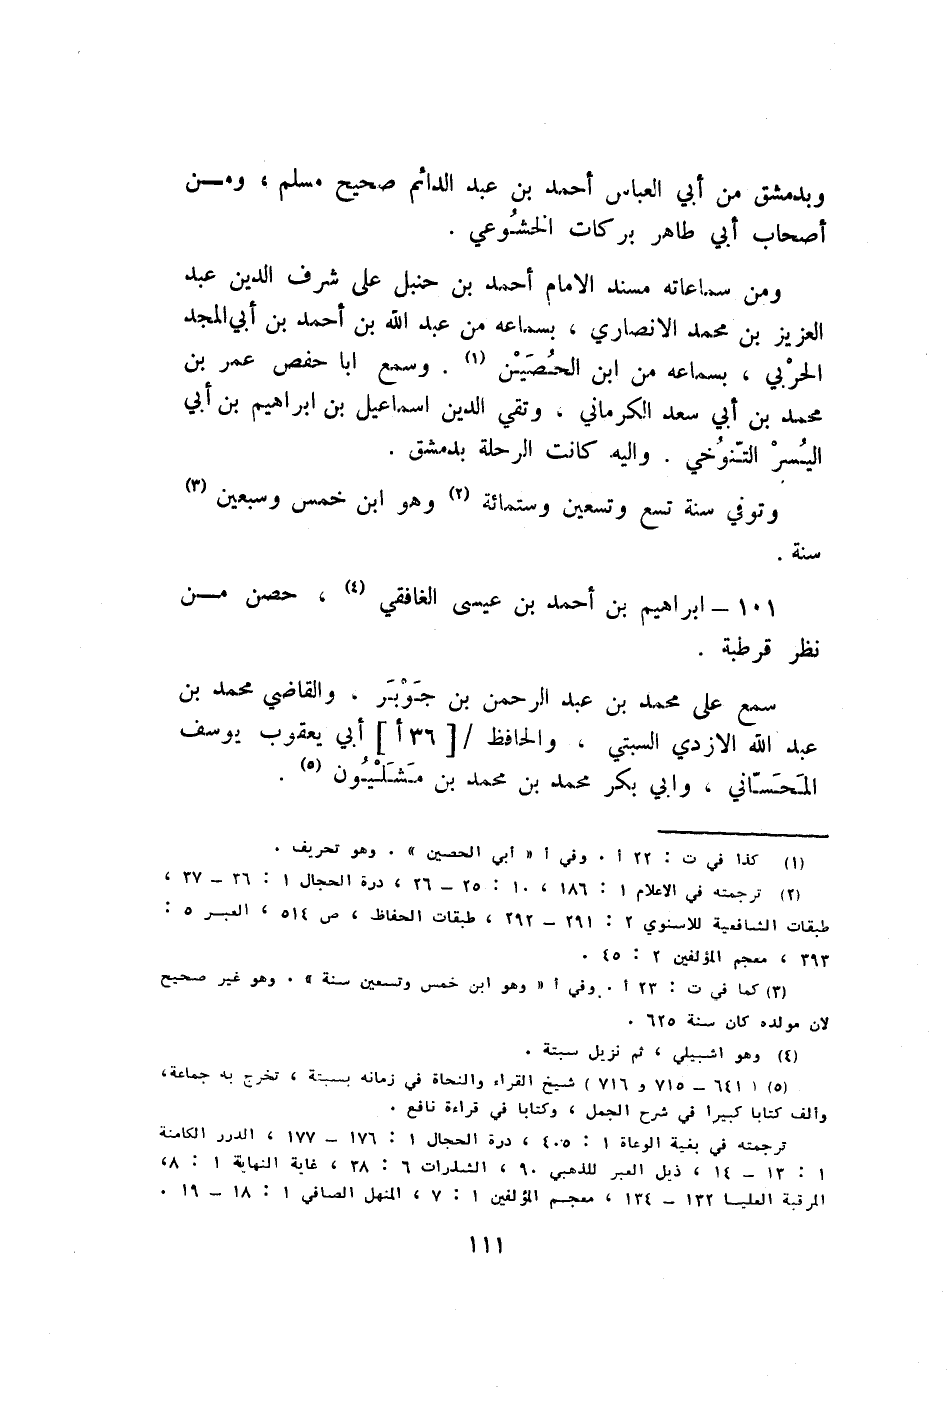 وبدمشق من أبي العباس أحمد بن عبد الدائم صحيح مسلم ، ومـن
أصحاب أبي طاهر بركات الخشُوعي .
ومن سماعاته مسند الامام أحمد بن حنبل على شرف الدين عبد
العزيز بن محمد الانصاري ، بسماعه من عبد الله بن أحمد بن أبي المجد
الحرْبي ، بسماعه من ابن الحُصَيْن (١) . وسمع ابا حفص عمر بن
محمد بن أبي سعد الكرماني ، وتقي الدين اسماعيل بن ابراهيم بن أبي
اليُسرْ التّنوُخي . واليه كانت الرحلة بدمشق .
وتوفي سنة تسع وتسعين وستمائة (٢) وهو ابن خمس وسبعين (٣)
سنة .
١٠١ – ابراهيم بن أحمد بن عيسى الغافقي (٤) ، حصن مـن
نظر قرطبة .
سمع على محمد بن عبد الرحمن بن جَوْبَر ، والقاضي محمد بن
عبد الله الازدي السبتي ، والحافظ /[ ٣٦أ ] أبي يعقوب يوسف
المَحَسّاني ، وابي بكر محمد بن محمد بن مَشَلْيُون (٥) .
(١) كذا في ت : ٢٢ أ . وفي أ « أبي الحصين » . وهو تحريف .
(٢) ترجمته في الاعلام ١ : ١٨٦ ، ١٠ : ٢٥ – ٢٦ ، درة الحجال ١ : ٣٦ – ٣٧ ،
طبقات الشافعية للاسنوي ٢ : ٢٩١ – ٢٩٢ ، طبقات الحفاظ ، ص ٥١٤ ، العبـر ٥ :
٣٩٣ ، معجم المؤلفين ٢ : ٤٥ .
(٣) كما في ت : ٢٣ أ . وفي أ « وهو ابن خمس وتسعين سنة » . وهو غير صحيح
لان مولده كان سنة ٦٢٥ .
(٤) وهو اشبيلي ، ثم نزيل سبتة .
(٥) ( ٦٤١ – ٧١٥ و ٧١٦ ) شيخ القراء والنحاة في زمانه بسبتة ، تخرج به جماعة،
وألف كتابا كبيرا في شرح الجمل ، وكتابا في قراءة نافع .
ترجمته في بغية الوعاة ١ : ٤٠٥ ، درة الحجال ١ : ١٧٦ – ١٧٧ ، الدرر الكامنة
١ : ١٣ – ١٤ ، ذيل العبر للذهبي ٩٠ ، الشذرات ٦ : ٣٨ ، غاية النهاية ١ : ٨،
المرقبة العليـا ١٣٢ – ١٣٤ ، معجـم المؤلفين ١ : ٧ ، المنهل الصافي ١ : ١٨ – ١٩ .
١١١